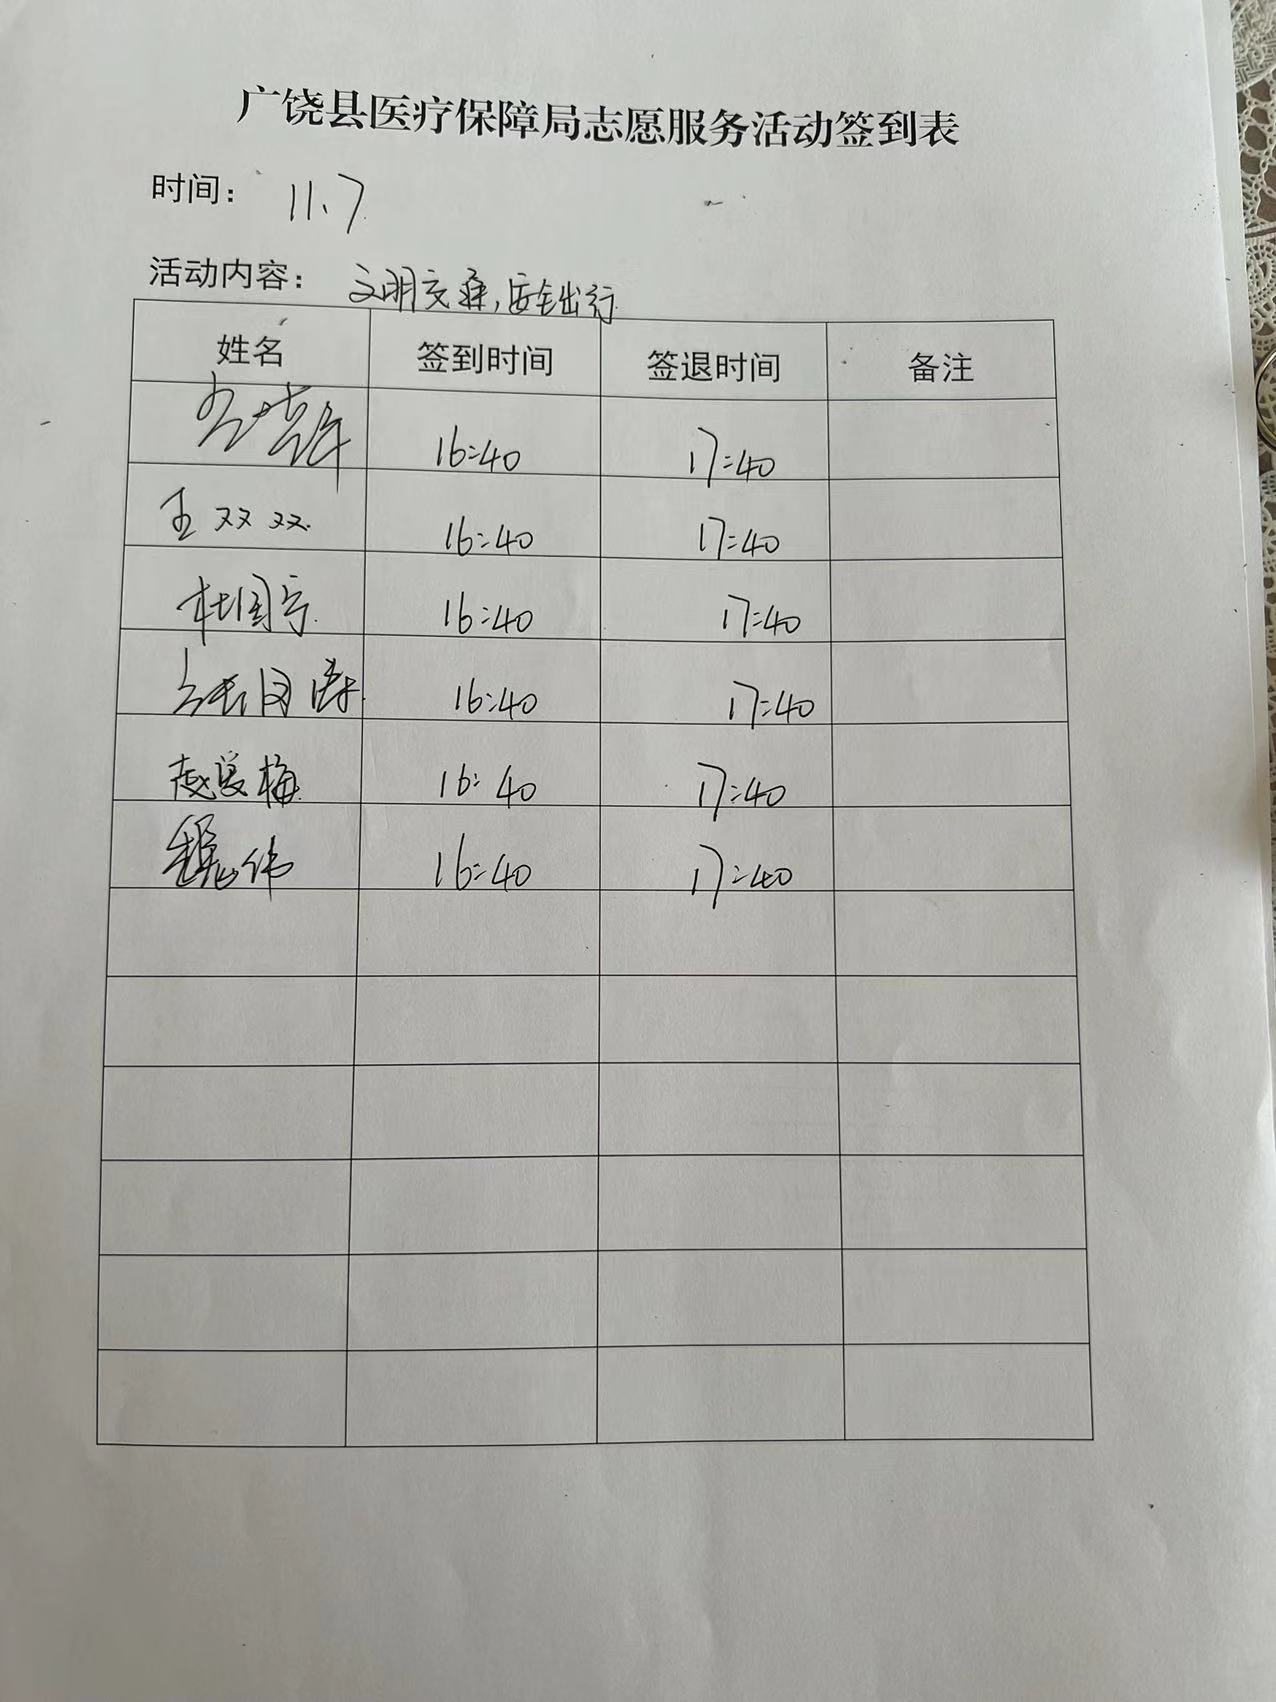 广饶县医疗保障局志愿服务活动签到表
时间： 11.7
活动内容： 文明交通,安全出行
姓名 签到时间 签退时间 备注
16:40 17:40
王双双 16:40 17:40
杜国宁 16:40 17:40
16:40 17:40
赵爱梅 16:40 17:40
魏伟 16:40 17:40